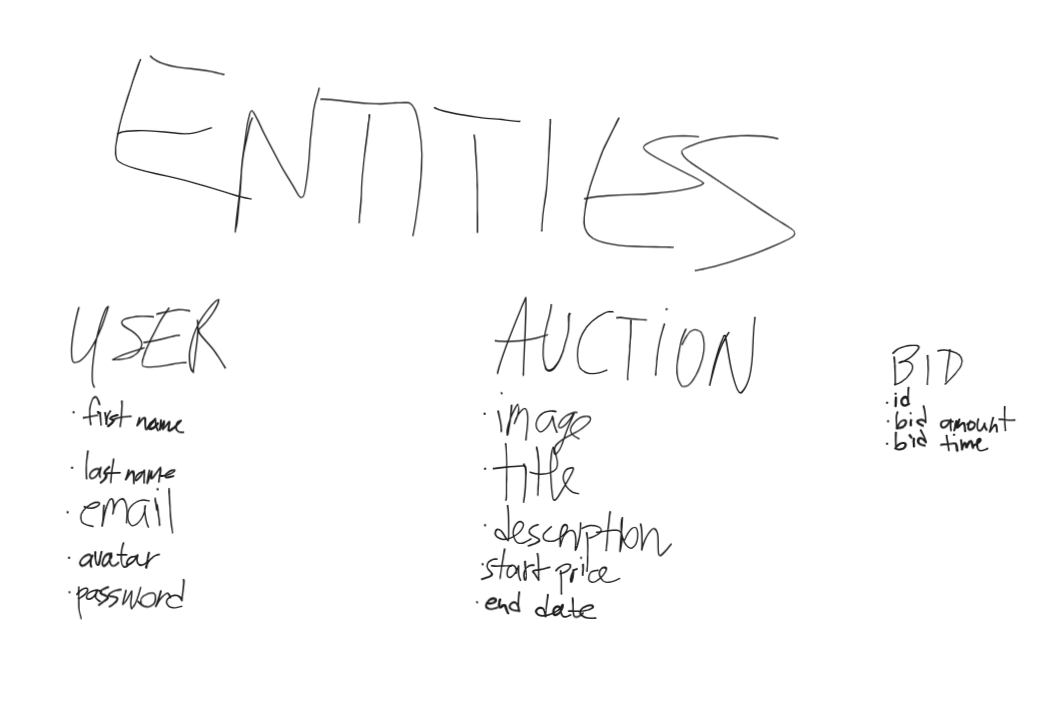 ENTITIES
USER
· first name
· last name
· email
· avatar
· password
AUCTION
· image
· title
· description
· start price
· end date
BID
· id
· bid amount
· bid time